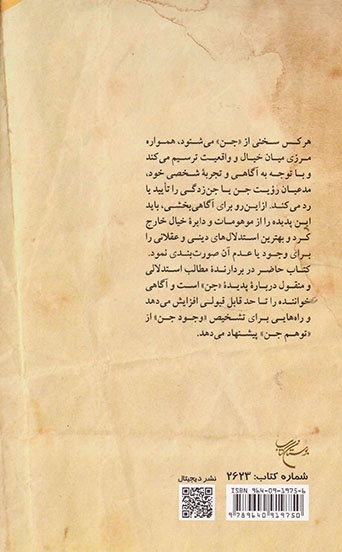 هرکس سخنی از «جن» می‌شنود، همواره
مرزی میان خیال و واقعیت ترسیم می‌کند
و با توجه به آگاهی و تجربهٔ شخصی خود،
مدعیان رؤیت جن یا جن‌زدگی را تأیید یا
رد می‌کند. ازاین‌رو برای آگاهی‌بخشی، باید
این پدیده را از موهومات و دایرهٔ خیال خارج
کرد و بهترین استدلال‌های دینی و عقلانی را
برای وجود یا عدم آن صورت‌بندی نمود.
کتاب حاضر در بردارندهٔ مطالب استدلالی
و منقول دربارهٔ پدیدهٔ «جن» است و آگاهی
خواننده را تا حد قابل قبولی افزایش می‌دهد
و راه‌هایی برای تشخیص «وجود جن» از
«توهم جن» پیشنهاد می‌دهد.
بوستان کتاب
شماره کتاب: ۲۶۲۳
نشر دیجیتال
ISBN: 964-09-1975-6
9 789640 919750